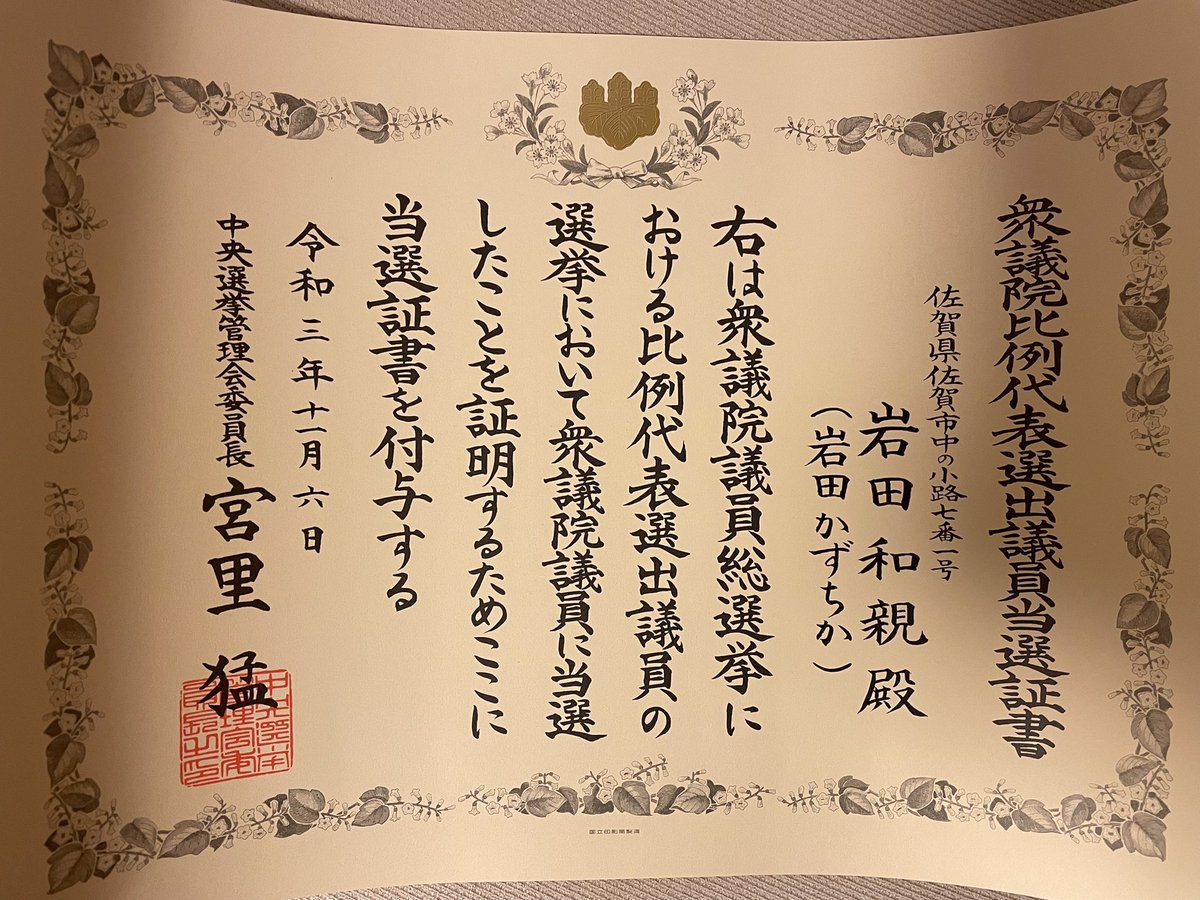 衆議院比例代表選出議員当選証書
佐賀県佐賀市中の小路七番一号
岩田和親殿
(岩田かずちか)
右は衆議院議員総選挙に
おける比例代表選出議員の
選挙において衆議院議員に当選
したことを証明するためここに
当選証書を付与する
令和三年十一月六日
中央選挙管理会委員長 宮里猛
国立印刷局製造